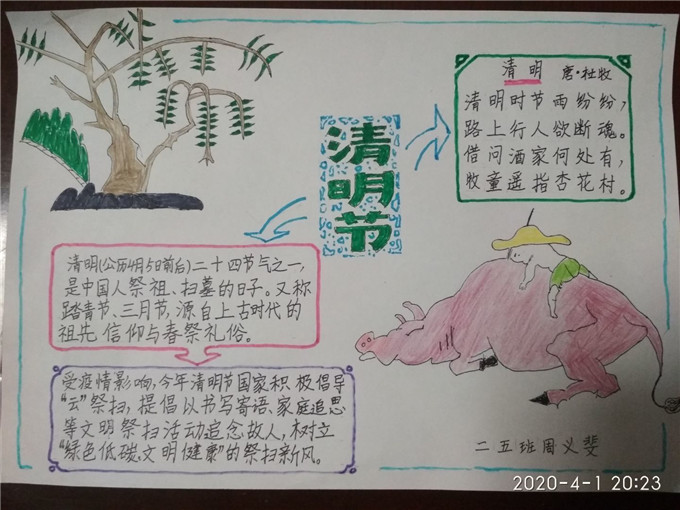 清明节
清明 唐·杜牧
清明时节雨纷纷，
路上行人欲断魂。
借问酒家何处有，
牧童遥指杏花村。
清明(公历4月5日前后)二十四节气之一，
是中国人祭祖、扫墓的日子。又称
踏青节、三月节，源自上古时代的
祖先信仰与春祭礼俗。
受疫情影响，今年清明节国家积极倡导
“云”祭扫，提倡以书写寄语、家庭追思
等文明祭扫活动追念故人，树立
“绿色低碳文明健康”的祭扫新风。
二五班周义斐
2020-4-1 20:23